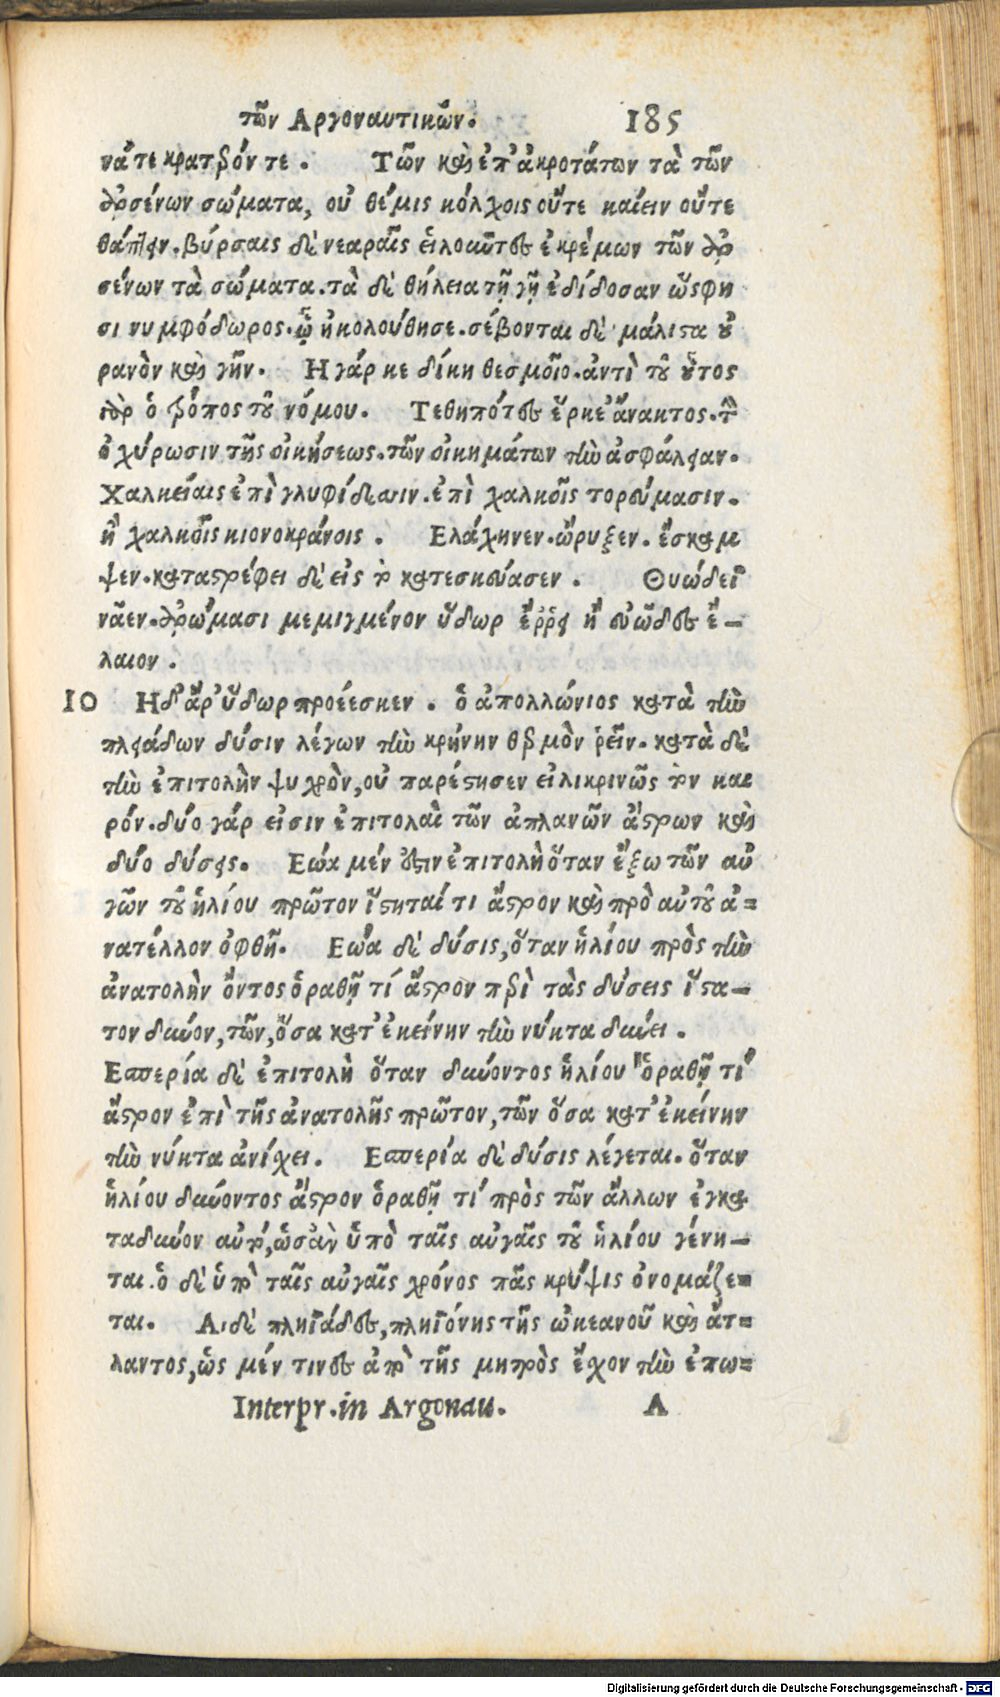 τῶν Αργοναυτικῶν. 185
νᾶτε κρατερόν τε. Τῶν καὶ ἐπ' ἀκροτάτων τὰ τῶν
ἀρσένων σώματα, οὐ θέμις κόλχοις οὔτε καίειν οὔτε
θάπτειν. βύρσαις δὲ νεαραῖς εἱλοῦντες ἐκρέμων τῶν ἀρ
σένων τὰ σώματα. τὰ δὲ θήλεια τῇ γῇ ἐδίδοσαν ὥς φη
σι νυμφόδωρος. ᾧ ἠκολούθησε. σέβονται δὲ μάλιστα οὐ
ρανὸν καὶ γῆν. Η γάρ κε δίκη θεσμοῖο. ἀντὶ τοῦ οὗτος
γὰρ ὁ τρόπος τοῦ νόμου. Τεθηπότες ἕρκε' ἄνακτος. τὴν
ὀχύρωσιν τῆς οἰκήσεως. τῶν οἰκημάτων τὴν ἀσφάλειαν.
Χαλκείαις ἐπὶ γλυφίδεσσιν. ἐπὶ χαλκοῖς τορεύμασιν.
ἢ χαλκοῖς κιονοκράνοις. Ελάχηνεν. ὤρυξεν. ἔσκαμ
ψεν. καταστρέφει δὲ εἰς τὸ κατεσκεύασεν. Θυώδεϊ
νᾶεν. ἀρώμασι μεμιγμένον ὕδωρ ἔρρει ἢ εὐῶδες ἔ-
λαιον.
10 Η δ' ἄρ' ὕδωρ προέεσκεν. ὁ ἀπολλώνιος κατὰ τὴν
πλειάδων δύσιν λέγων τὴν κρήνην θερμὸν ῥεῖν. κατὰ δὲ
τὴν ἐπιτολὴν ψυχρὸν, οὐ παρέστησεν εἰλικρινῶς τὸν και
ρόν. δύο γάρ εἰσιν ἐπιτολαὶ τῶν ἀπλανῶν ἄστρων καὶ
δύο δύσεις. Εώα μέν ἐστιν ἐπιτολὴ ὅταν ἔξω τῶν αὐ
γῶν τοῦ ἡλίου πρῶτον ἵστηταί τι ἄστρον καὶ πρὸ αὐτοῦ ἀ=
νατέλλον ὀφθῇ. Εώα δὲ δύσις, ὅταν ἡλίου πρὸς τὴν
ἀνατολὴν ὄντος ὁραθῇ τί ἄστρον περὶ τὰς δύσεις ἵστα-
τον δῦνον, τῶν, ὅσα κατ' ἐκείνην τὴν νύκτα δύνει.
Εσπερία δὲ ἐπιτολὴ ὅταν δύνοντος ἡλίου ὁραθῇ τί
ἄστρον ἐπὶ τῆς ἀνατολῆς πρῶτον, τῶν ὅσα κατ' ἐκείνην
τὴν νύκτα ἀνίχει. Εσπερία δὲ δύσις λέγεται. ὅταν
ἡλίου δύνοντος ἄστρον ὁραθῇ τί πρὸς τῶν ἄλλων ἐγκα
ταδῦνον αὐτὸ, ὡς ἂν ὑπὸ ταῖς αὐγαῖς τοῦ ἡλίου γένη-
ται. ὁ δὲ ὑπὸ ταῖς αὐγαῖς χρόνος πᾶς κρύψις ὀνομάζε=
ται. Αι δὲ πληϊάδες, πληϊόνης τῆς ὠκεανοῦ καὶ ἄτ=
λαντος, ὡς μέν τινες ἀπὸ τῆς μητρὸς ἔχον τὴν ἐπω=
Interpr. in Argonau. A
Digitalisierung gefördert durch die Deutsche Forschungsgemeinschaft - DFG